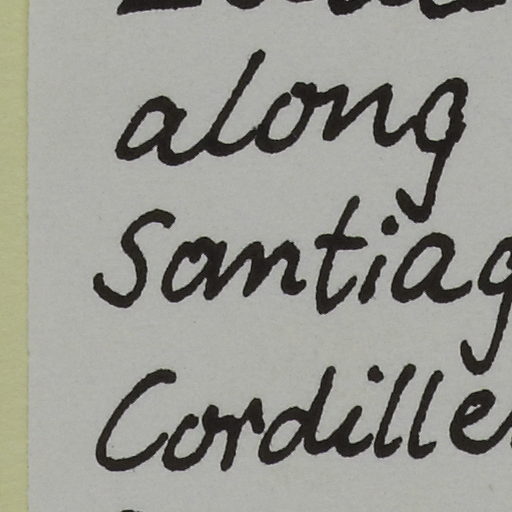 along
Santiag
Cordille